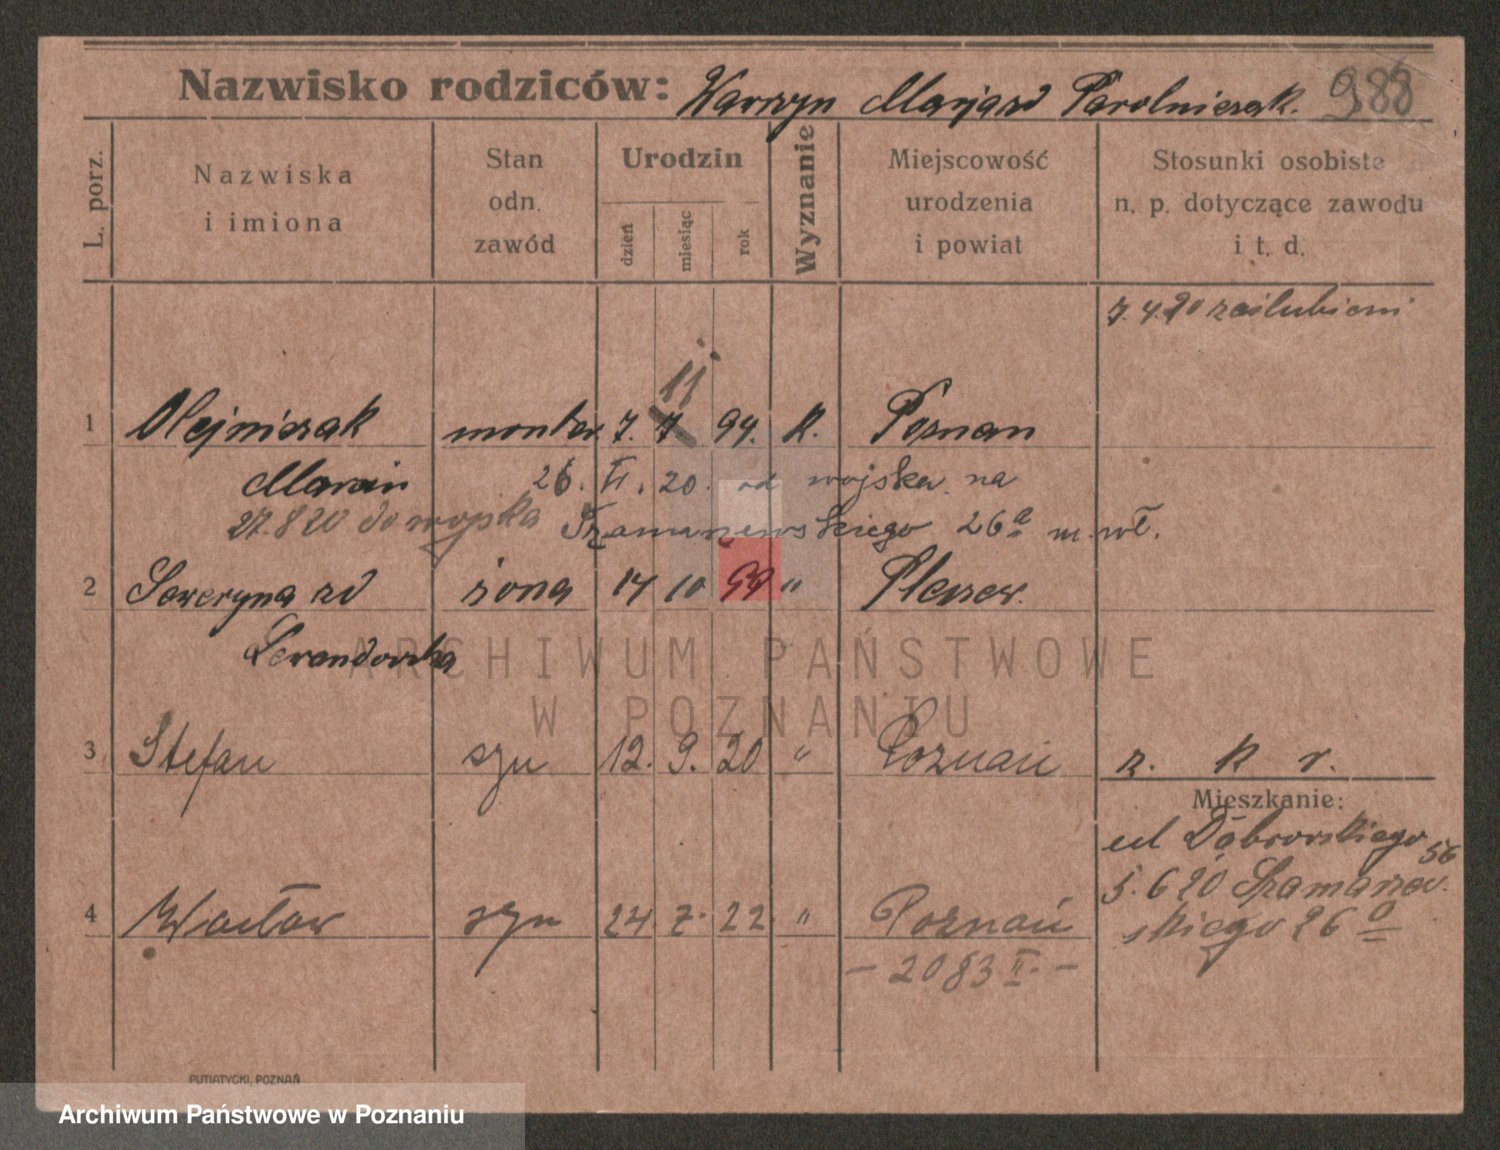 Nazwisko rodziców: Warzyn Marja zd Parolniczak. 988
L. porz.
Nazwiska i imiona
Stan odn. zawód
Urodzin
dzień miesiąc rok
Wyznanie
Miejscowość urodzenia i powiat
Stosunki osobiste n. p. dotyczące zawodu i t. d.
7.4.20 zaślubieni
11
1 Olejniczak monter 7. 7. 94. K. Poznan
Marcin 26. II. 20. od wojska na
27.8 20 do wojska Szamarzewskiego 26a m. wł.
2 Seweryna zd żona 14 10 99 " Pleszew.
Lewandowska
3 Stefan syn 12. 9. 20 " Poznań z. k r.
Mieszkanie:
ul Dąbrowskiego 56
5. 6 20 Szamarzew-
4 Wacław syn 24. 7. 22. " Poznań skiego 26 a
- 2083 II. -
PUTIATYCKI, POZNAŃ
ARCHIWUM PAŃSTWOWE
W POZNANIU
Archiwum Państwowe w Poznaniu